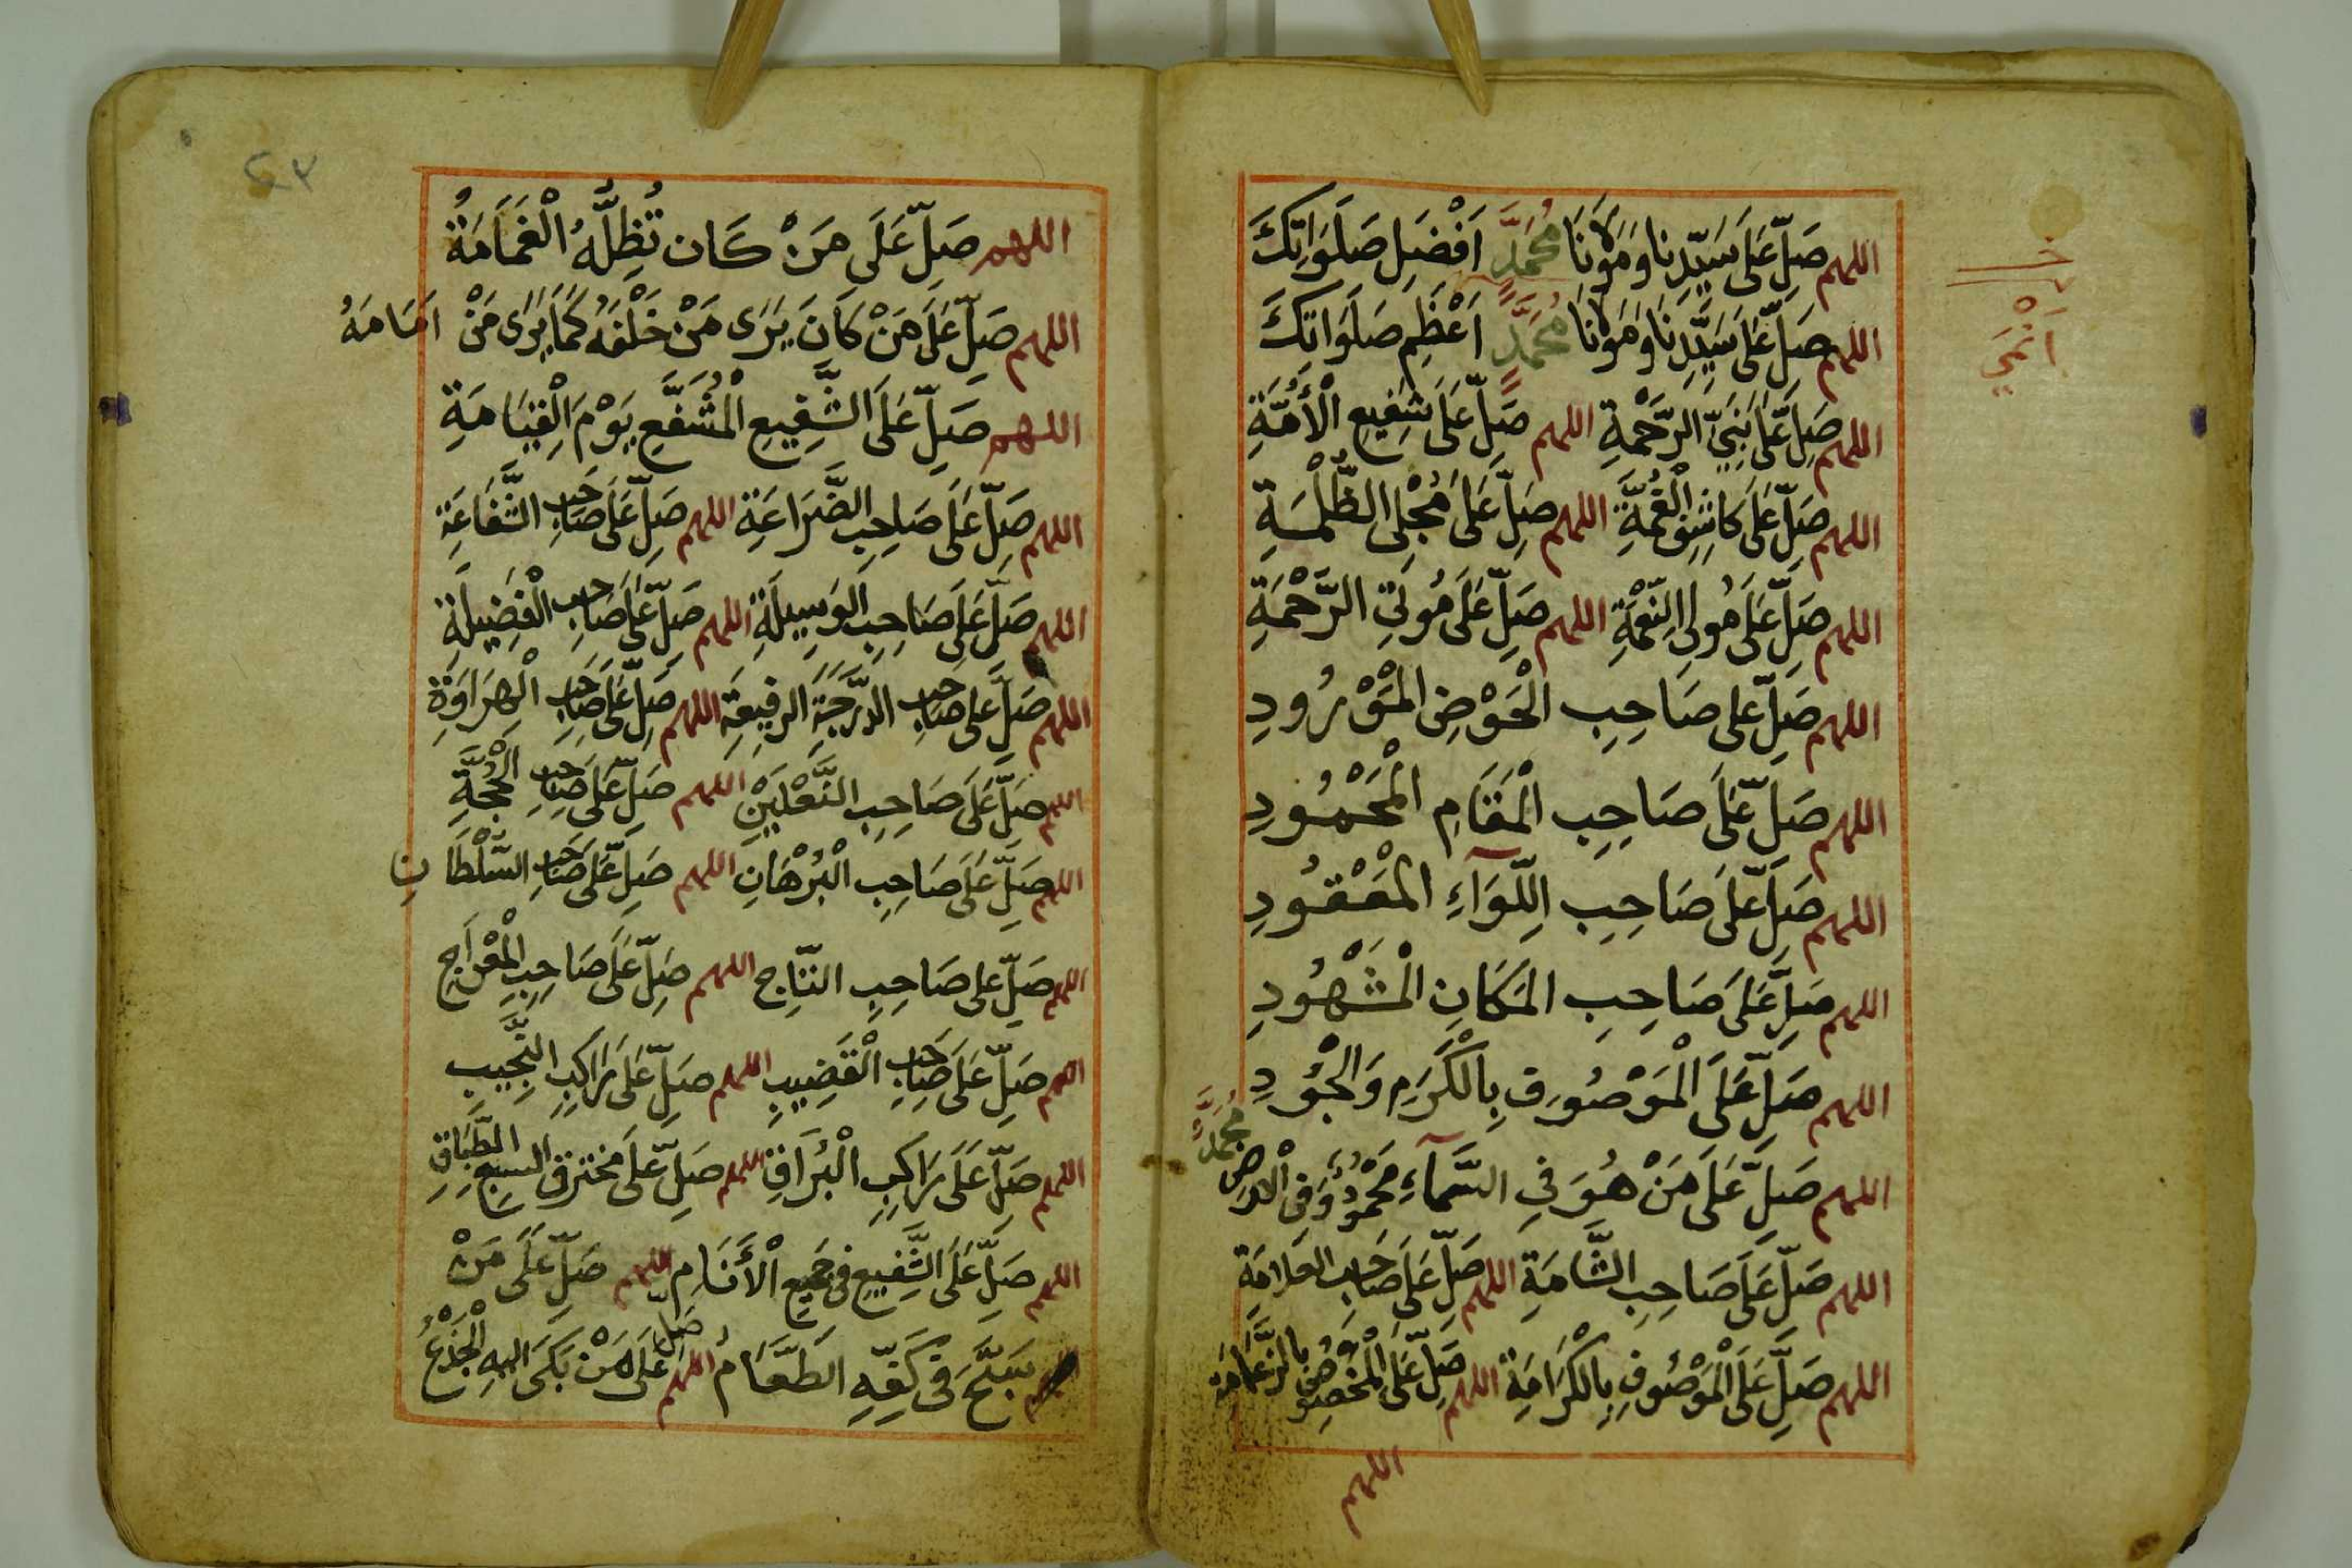 اللهم صَلِّ عَلَى سَيِّدِنَا وَمَوْلَانَا مُحَمَّدٍ اَفْضَلِ صَلَوَاتِكَ
اللهم صَلِّ عَلَى سَيِّدِنَا وَمَوْلَانَا مُحَمَّدٍ اَعْظَمِ صَلَوَاتِكَ
اللهم صَلِّ عَلَى نَبِيِّ الرَّحْمَةِ اللهم صَلِّ عَلَى شَفِيعِ الْأُمَّةِ
اللهم صَلِّ عَلَى كَاشِفِ الْغُمَّةِ اللهم صَلِّ عَلَى مُجْلِى الظُّلْمَةِ
اللهم صَلِّ عَلَى مُولِى النِّعْمَةِ اللهم صَلِّ عَلَى مُولِتِي الرَّحْمَةِ
اللهم صَلِّ على صَاحِبِ الْحَوْضِ الْمَوْرُودِ
اللهم صَلِّ عَلَى صَاحِبِ الْمَقَامِ الْمَحْمُودِ
اللهم صَلِّ عَلَى صَاحِبِ اللِّوَآءِ الْمَعْقُودِ
اللهم صَلِّ عَلَى صَاحِبِ الْمَكَانِ الْمَشْهُودِ
اللهم صَلِّ عَلَى الْمَوْصُوفِ بِالْكَرَمِ وَالْجُوْدِ
اللهم صَلِّ عَلَى مَنْ هُوَ فِي السَّمَآءِ مَحْمُودٌ وَفِى الْارض مُحَمَّدٌ
اللهم صَلِّ عَلَى صَاحِبِ الشَّامَةِ اللهم صَلِّ عَلَى صَاحِبِ العَلامَةِ
اللهم صَلِّ عَلَى الْمَوْصُوفِ بِالْكَرَامَةِ اللهم صَلِّ عَلَى الْمَخْصُوصِ بِالزَّعَامَةِ
اللهم
اللهم صَلِّ عَلَى مَنْ كَان تُظِلُّهُ الْغَمَامَةُ
اللهم صَلِّ عَلَى مَنْ كَانَ يَرَى مَنْ خَلْفَهُ كَمَا يَرَى مَنْ اَمَامَهُ
اللهم صَلِّ عَلَى الشَّفِيعِ الْمُشَفَّعِ يَوْمَ الْقِيَامَةِ
اللهم صَلِّ عَلَى صَاحِبِ الضَّرَاعَةِ اللهم صَلِّ عَلَى صَاحِبِ الشَّفَاعَةِ
اللهم صَلِّ عَلَى صَاحِبِ الوَسِيلَةِ اللهم صَلِّ عَلَى صَاحِبِ الْفَضِيلَةِ
اللهم صَلِّ على صَاحِبِ الدَّرَجَةِ الرفِيعَةِ اللهم صَلِّ عَلَى صَاحِبِ الْهِرَاوَةِ
اللهم صَلِّ عَلَى صَاحِبِ النَّعْلَيْنِ اللهم صَلِّ عَلَى صَاحِبِ الْحُجَّةِ
اللهم صَلِّ عَلَى صَاحِبِ الْبُرْهَانِ اللهم صَلِّ عَلَى صَاحِبِ السُّلْطَانِ
اللهم صَلِّ على صَاحِبِ التَّاجِ اللهم صَلِّ عَلَى صَاحِبِ الْمِعْرَاجِ
اللهم صَلِّ عَلَى صَاحِبِ الْقَضِيبِ اللهم صَلِّ عَلَى رَاكِبِ النَّجِيبِ
اللهم صَلِّ عَلَى رَاكِبِ الْبُرَاقِ اللهم صَلِّ عَلَى مخترق السبع الطِّبَاقِ
اللهم صَلِّ عَلَى الشَّفِيعِ فى جَمِيعِ الْأَنَامِ اللهم صَلِّ عَلَى مَنْ
سَبَّحَ فِى كَفِّهِ الطَّعَامُ اللهم صَلِّ عَلَى مَنْ بَكَى اليه الْجِذْعُ